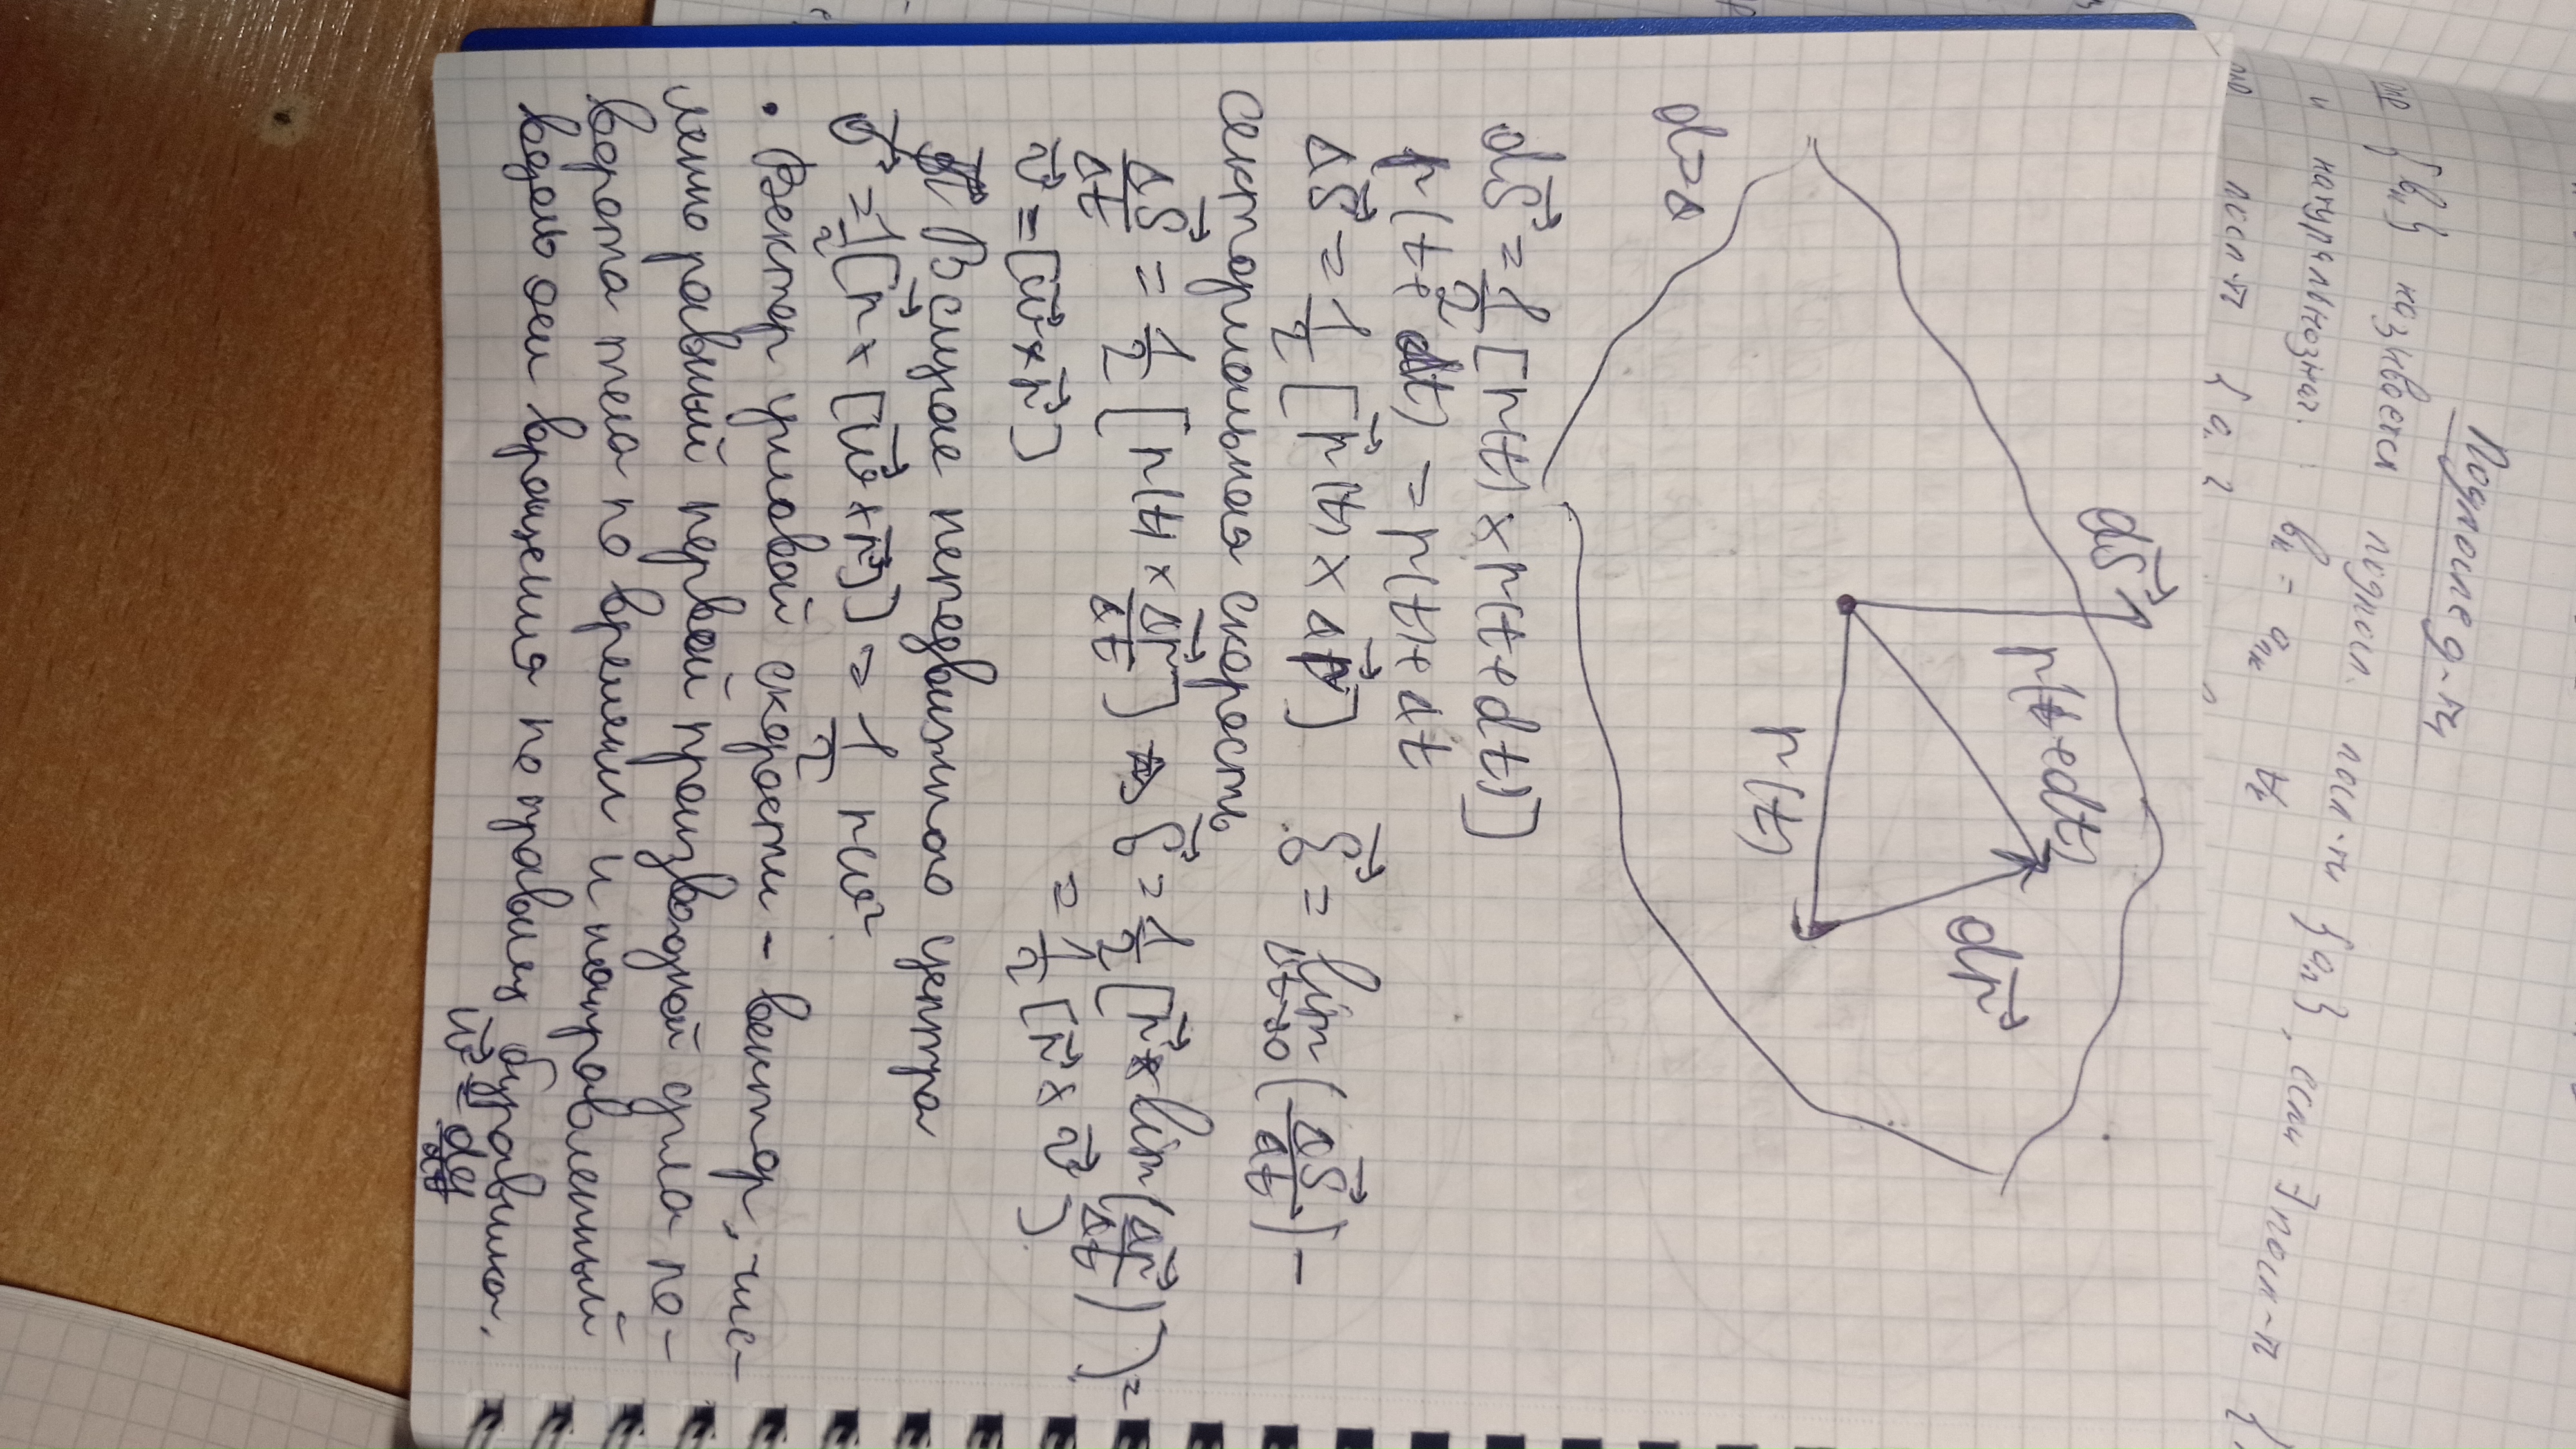 Подпослед-ти
{bₙ} называется подпосл. посл-ти {aₙ}, если ∃ посл-ть
и натуральнозначн.
посл-ти bₖ = aₙₖ ∀k
dS⃗
r(t+dt)
dr⃗
r(t)
d→Δ
dS⃗ = 1/2 [r(t) × r(t+dt)]
r(t+dt) = r(t)+dt
ΔS⃗ = 1/2 [r⃗(t) × Δr⃗] σ⃗ = lim Δt→0 (ΔS⃗/Δt) –
секториальная скорость
ΔS⃗/Δt = 1/2 [r(t) × Δr⃗/Δt] ⇒ σ⃗ = 1/2 [r⃗ × lim(Δr⃗/Δt)] =
= 1/2 [r⃗ × v⃗]
v⃗ = [ω⃗ × r⃗]
В случае неподвижного центра
σ⃗ = 1/2 [r⃗ × [ω⃗ × r⃗]] = 1/2 r²ω⃗
• Вектор угловой скорости – вектор, чис-
ленно равный первой производной угла по-
ворота тела по времени и направленный
вдоль оси вращения по правилу буравчика.
ω⃗ = dφ/dt